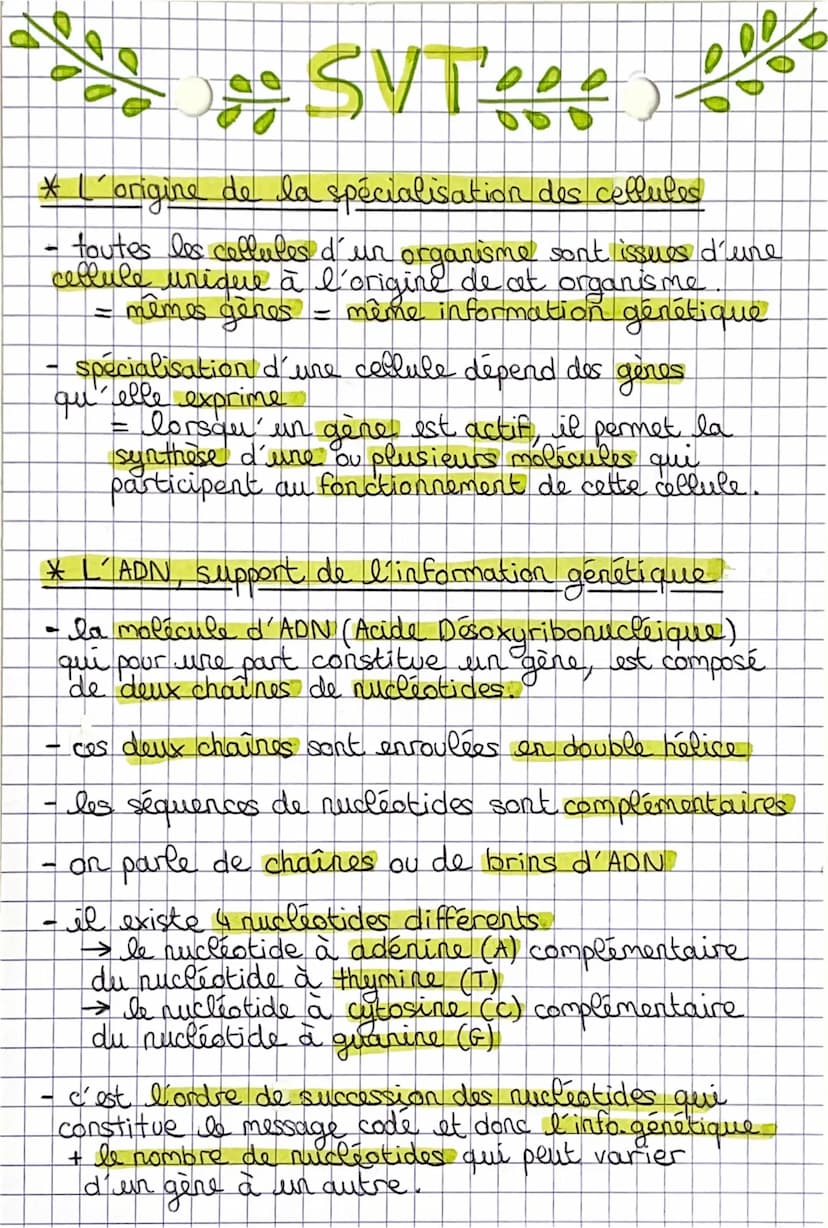 SVT
* L'origine de la spécialisation des cellules
- toutes les cellules d'un organisme sont issues d'une
cellule unique à l'origine de cet organisme.
= mêmes gènes = même information génétique
- spécialisation d'une cellule dépend des gènes
qu'elle exprime
= lorsqu'un gène est actif, il permet la
synthèse d'une ou plusieurs molécules qui
participent au fonctionnement de cette cellule.
* L'ADN, support de l'information génétique
- la molécule d'ADN (Acide Désoxyribonucléique)
qui pour une part constitue un gène, est composé
de deux chaînes de nucléotides.
- ces deux chaînes sont enroulées en double hélice
- les séquences de nucléotides sont complémentaires
- on parle de chaînes ou de brins d'ADN
- il existe 4 nucléotides différents.
→ le nucléotide à adénine (A) complémentaire
du nucléotide à thymine (T)
→ le nucléotide à cytosine (C) complémentaire
du nucléotide à guanine (G)
- c'est l'ordre de succession des nucléotides qui
constitue le message codé et donc l'info. génétique
+ le nombre de nucléotides qui peut varier
d'un gène à un autre.